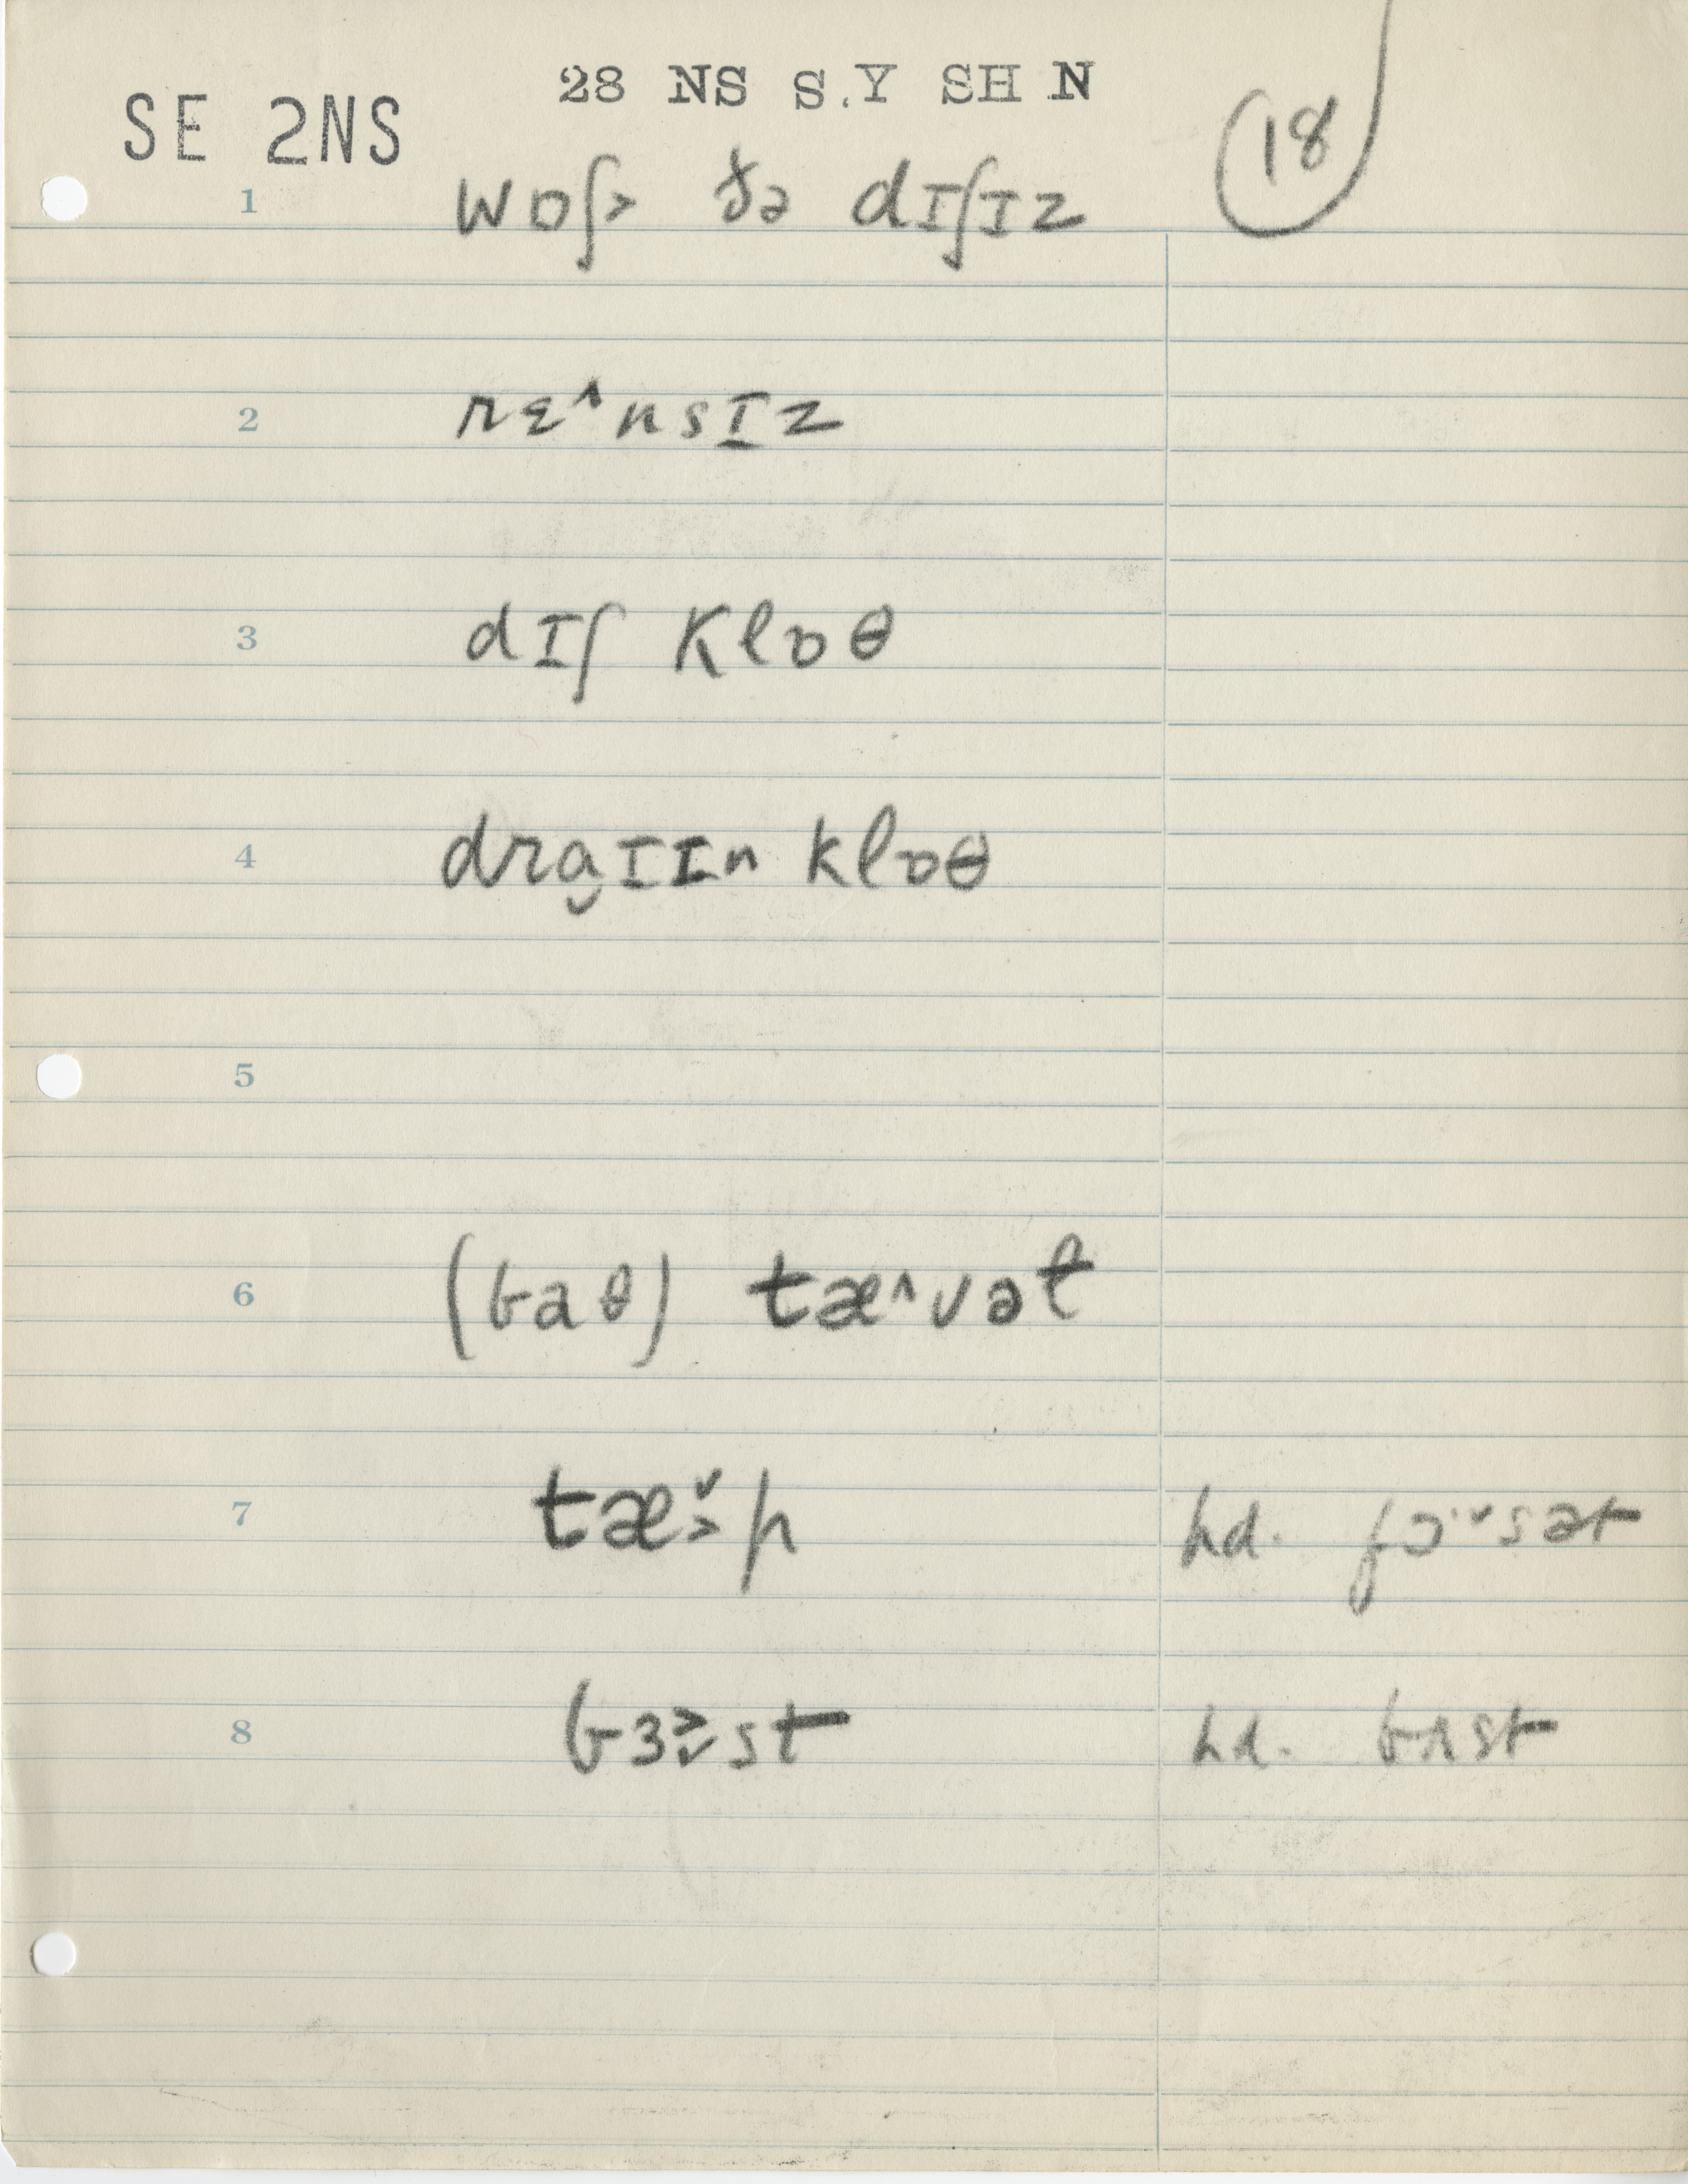 28 NS S.Y SH N
SE 2NS
18
1 wɒʃ˃ ðə dɪʃɪz
2 rɛ^nsɪz
3 dɪʃ klɒθ
4 dra̬ɪɪn klɒθ
5
6 (baθ) tæ^vəl
7 tæ˅˃p hd. fɔ·˅sət
8 bɜ˃˅st hd. bʌst